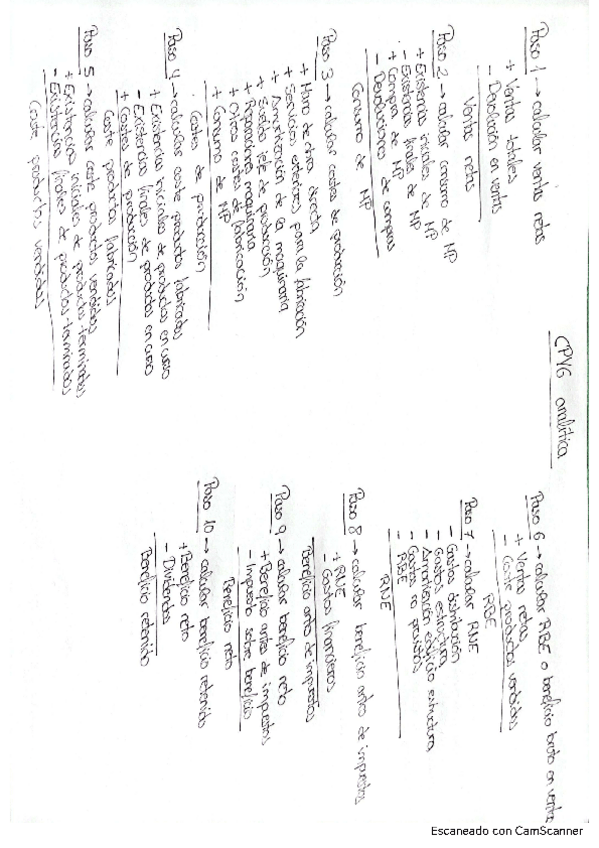 CPYG analítica
Paso 1 → calcular ventas netas
+ Ventas totales
- Devolución en ventas
Ventas netas
Paso 2 → calcular consumo de MP
+ Existencias iniciales de MP
- Existencias finales de MP
+ Compra de MP
- Devoluciones de compras
Consumo de MP
Paso 3 → calcular costes de producción
+ Mano de obra directa
+ Servicios exteriores para la fabricación
+ Amortización de la maquinaria
+ Sueldo jefe de producción
+ Reparaciones maquinaria
+ Otros costes de fabricación
+ Consumo de MP
Costes de producción
Paso 4 → calcular coste productos fabricados
+ Existencias iniciales de productos en curso
- Existencias finales de productos en curso
+ Costes de producción
Coste productos fabricados
Paso 5 → calcular coste productos vendidos
+ Existencias iniciales de productos terminados
- Existencias finales de productos terminados
Coste productos vendidos
Paso 6 → calcular RBE o beneficio bruto en ventas
+ Ventas netas
- Coste productos vendidos
RBE
Paso 7 → calcular RNE
- Gastos distribución
- Gastos estructura
- Amortización edificio estructura
- Gastos no previstos
- RBE
RNE
Paso 8 → calcular beneficio antes de impuestos
+ RNE
- Gastos financieros
Beneficio antes de impuestos
Paso 9 → calcular beneficio neto
+ Beneficio antes de impuestos
- Impuesto sobre beneficio
Beneficio neto
Paso 10 → calcular beneficio retenido
+ Beneficio neto
- Dividendos
Beneficio retenido
Escaneado con CamScanner